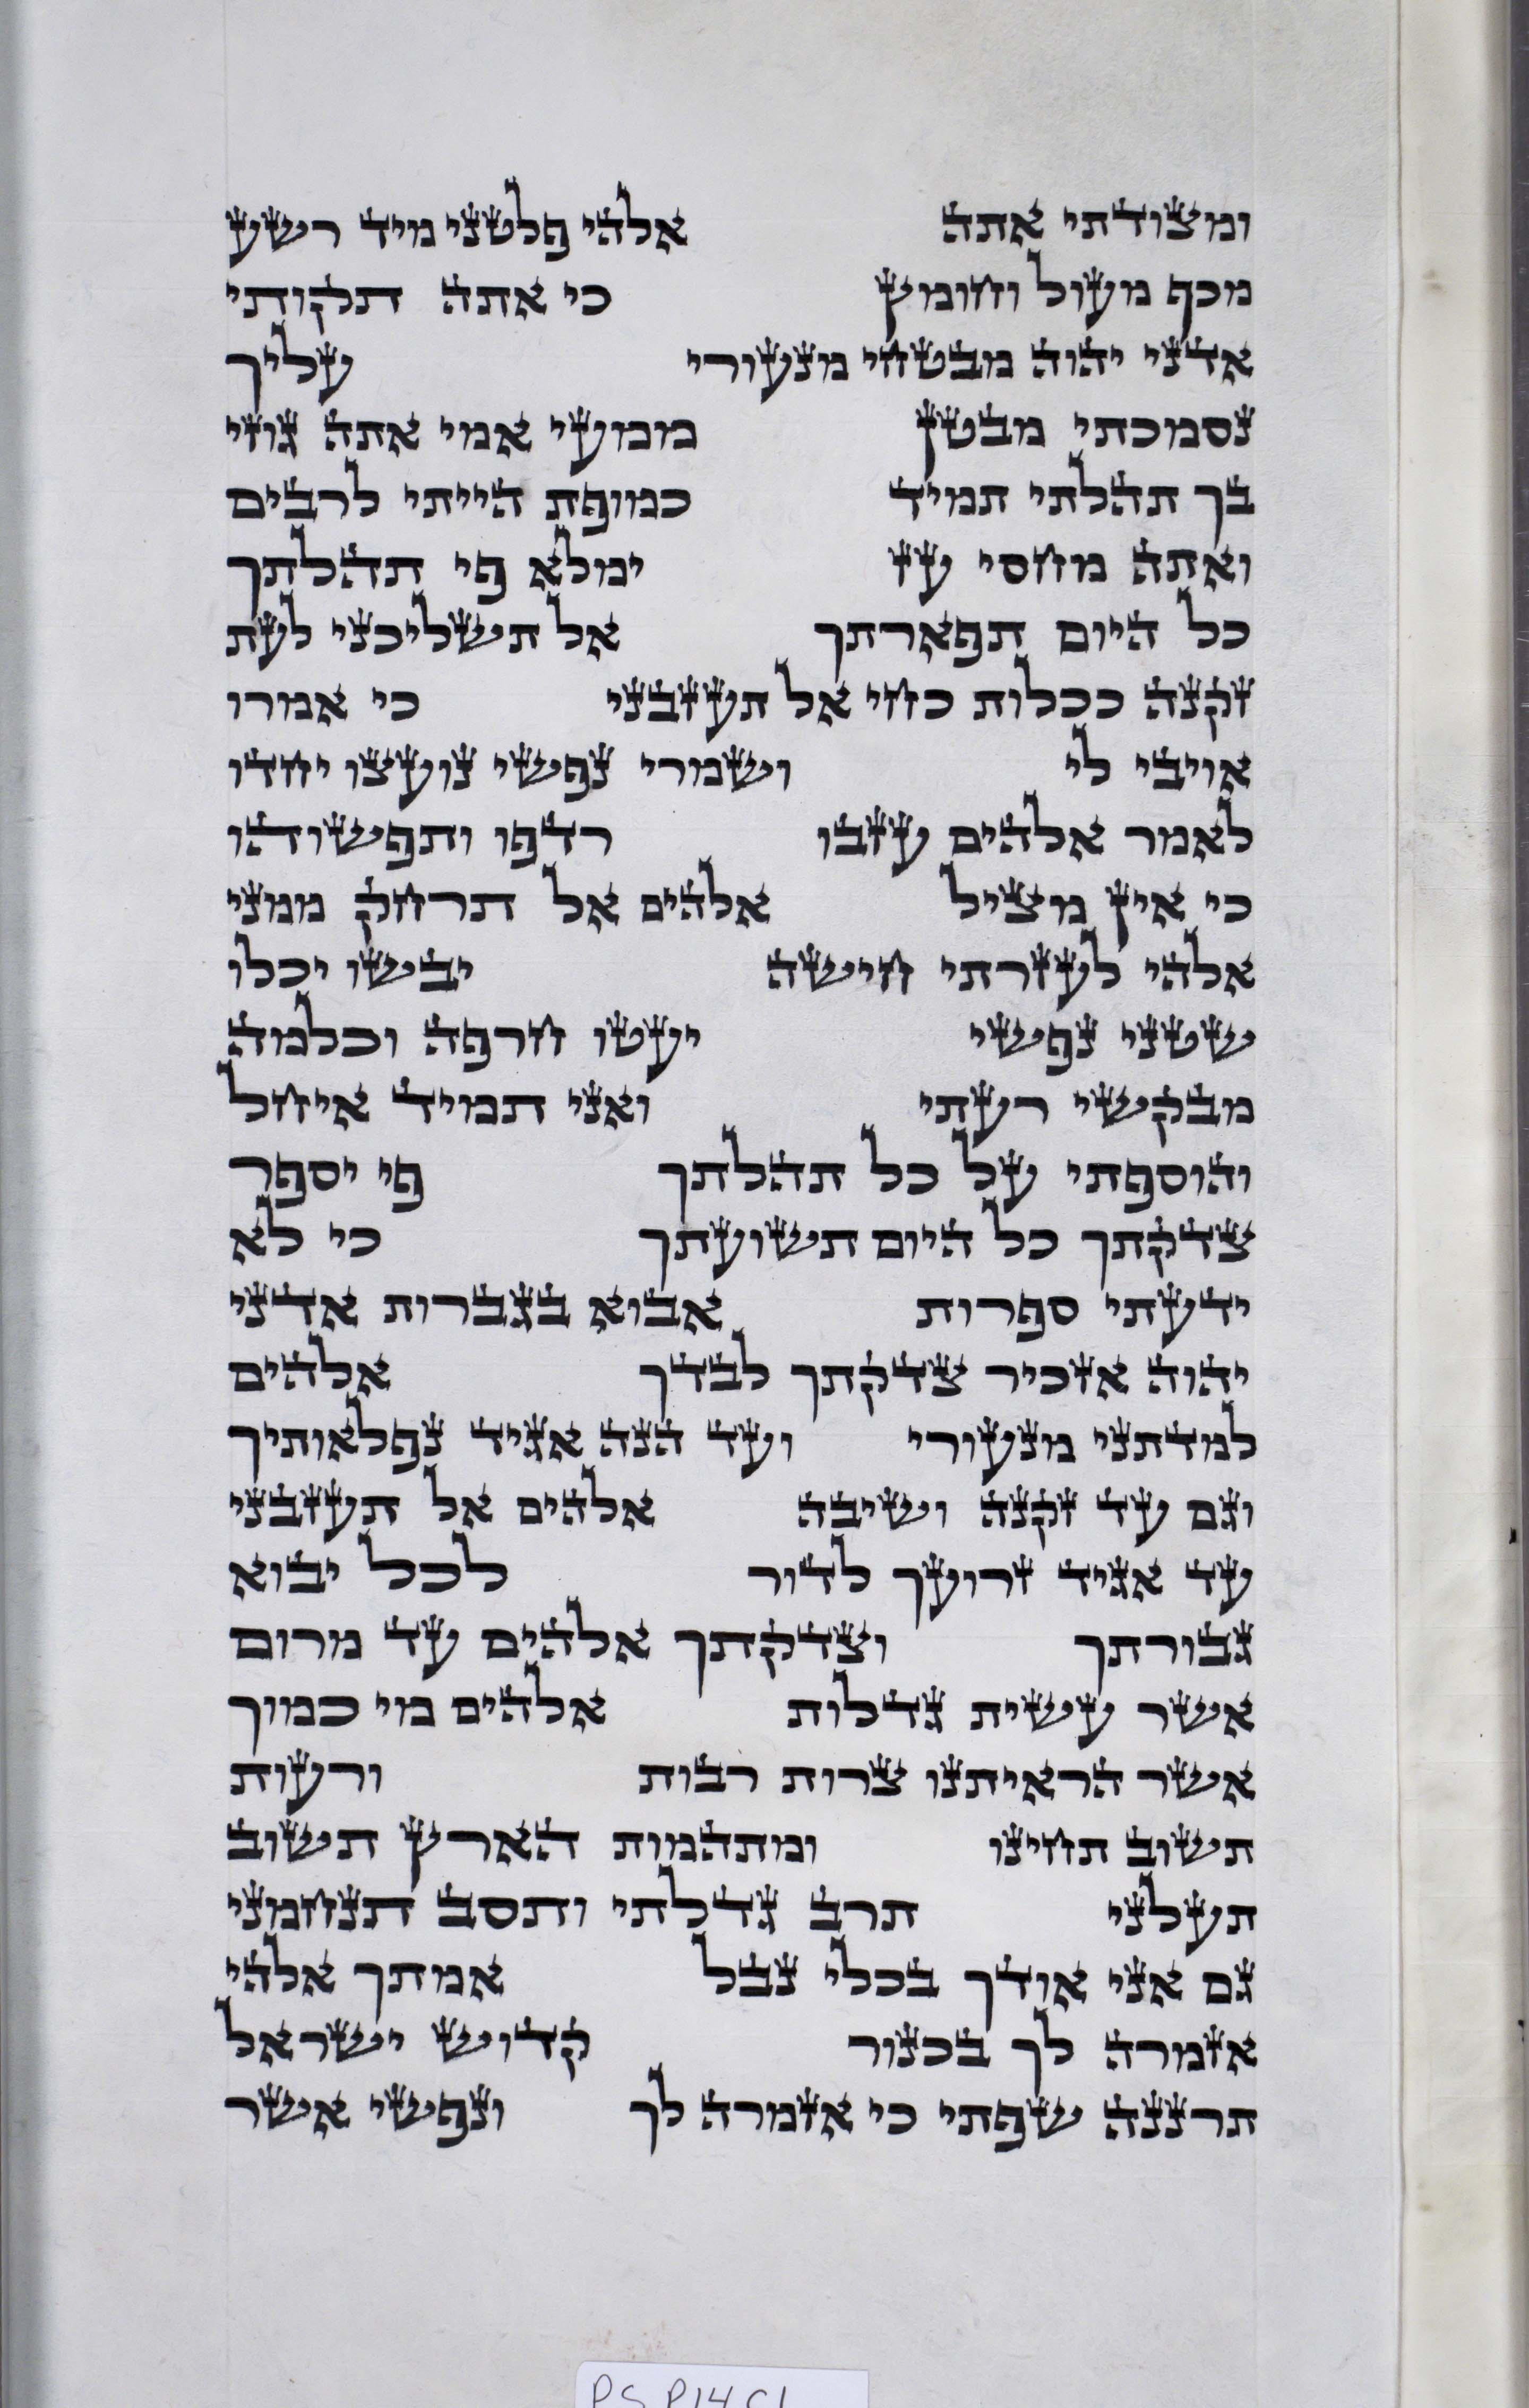 ומצודתי אתה אלהי פלטני מיד רשע
מכף מעול וחומץ כי אתה תקותי
אדני יהוה מבטחי מנעורי עליך
נסמכתי מבטן ממעי אמי אתה גוזי
בך תהלתי תמיד כמופת הייתי לרבים
ואתה מחסי עז ימלא פי תהלתך
כל היום תפארתך אל תשליכני לעת
זקנה ככלות כחי אל תעזבני כי אמרו
אויבי לי ושמרי נפשי נועצו יחדו
לאמר אלהים עזבו רדפו ותפשוהו
כי אין מציל אלהים אל תרחק ממני
אלהי לעזרתי חישה יבשו יכלו
שטני נפשי יעטו חרפה וכלמה
מבקשי רעתי ואני תמיד איחל
והוספתי על כל תהלתך פי יספר
צדקתך כל היום תשועתך כי לא
ידעתי ספרות אבוא בגברות אדני
יהוה אזכיר צדקתך לבדך אלהים
למדתני מנעורי ועד הנה אגיד נפלאותיך
וגם עד זקנה ושיבה אלהים אל תעזבני
עד אגיד זרועך לדור לכל יבוא
גבורתך וצדקתך אלהים עד מרום
אשר עשית גדלות אלהים מי כמוך
אשר הראיתנו צרות רבות ורעות
תשוב תחינו ומתהמות הארץ תשוב
תעלני תרב גדלתי ותסב תנחמני
גם אני אודך בכלי נבל אמתך אלהי
אזמרה לך בכנור קדוש ישראל
תרננה שפתי כי אזמרה לך ונפשי אשר
PS P14 C1